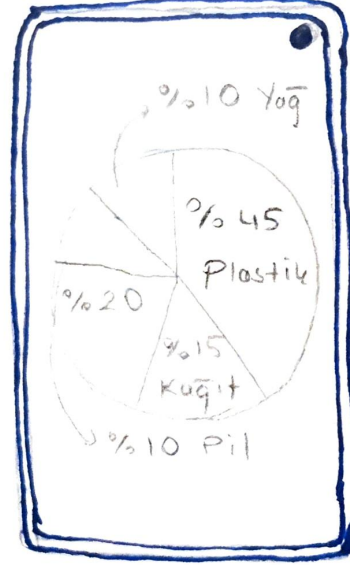 %10 Yağ
%45
Plastik
%20
%15
Kağıt
%10 Pil